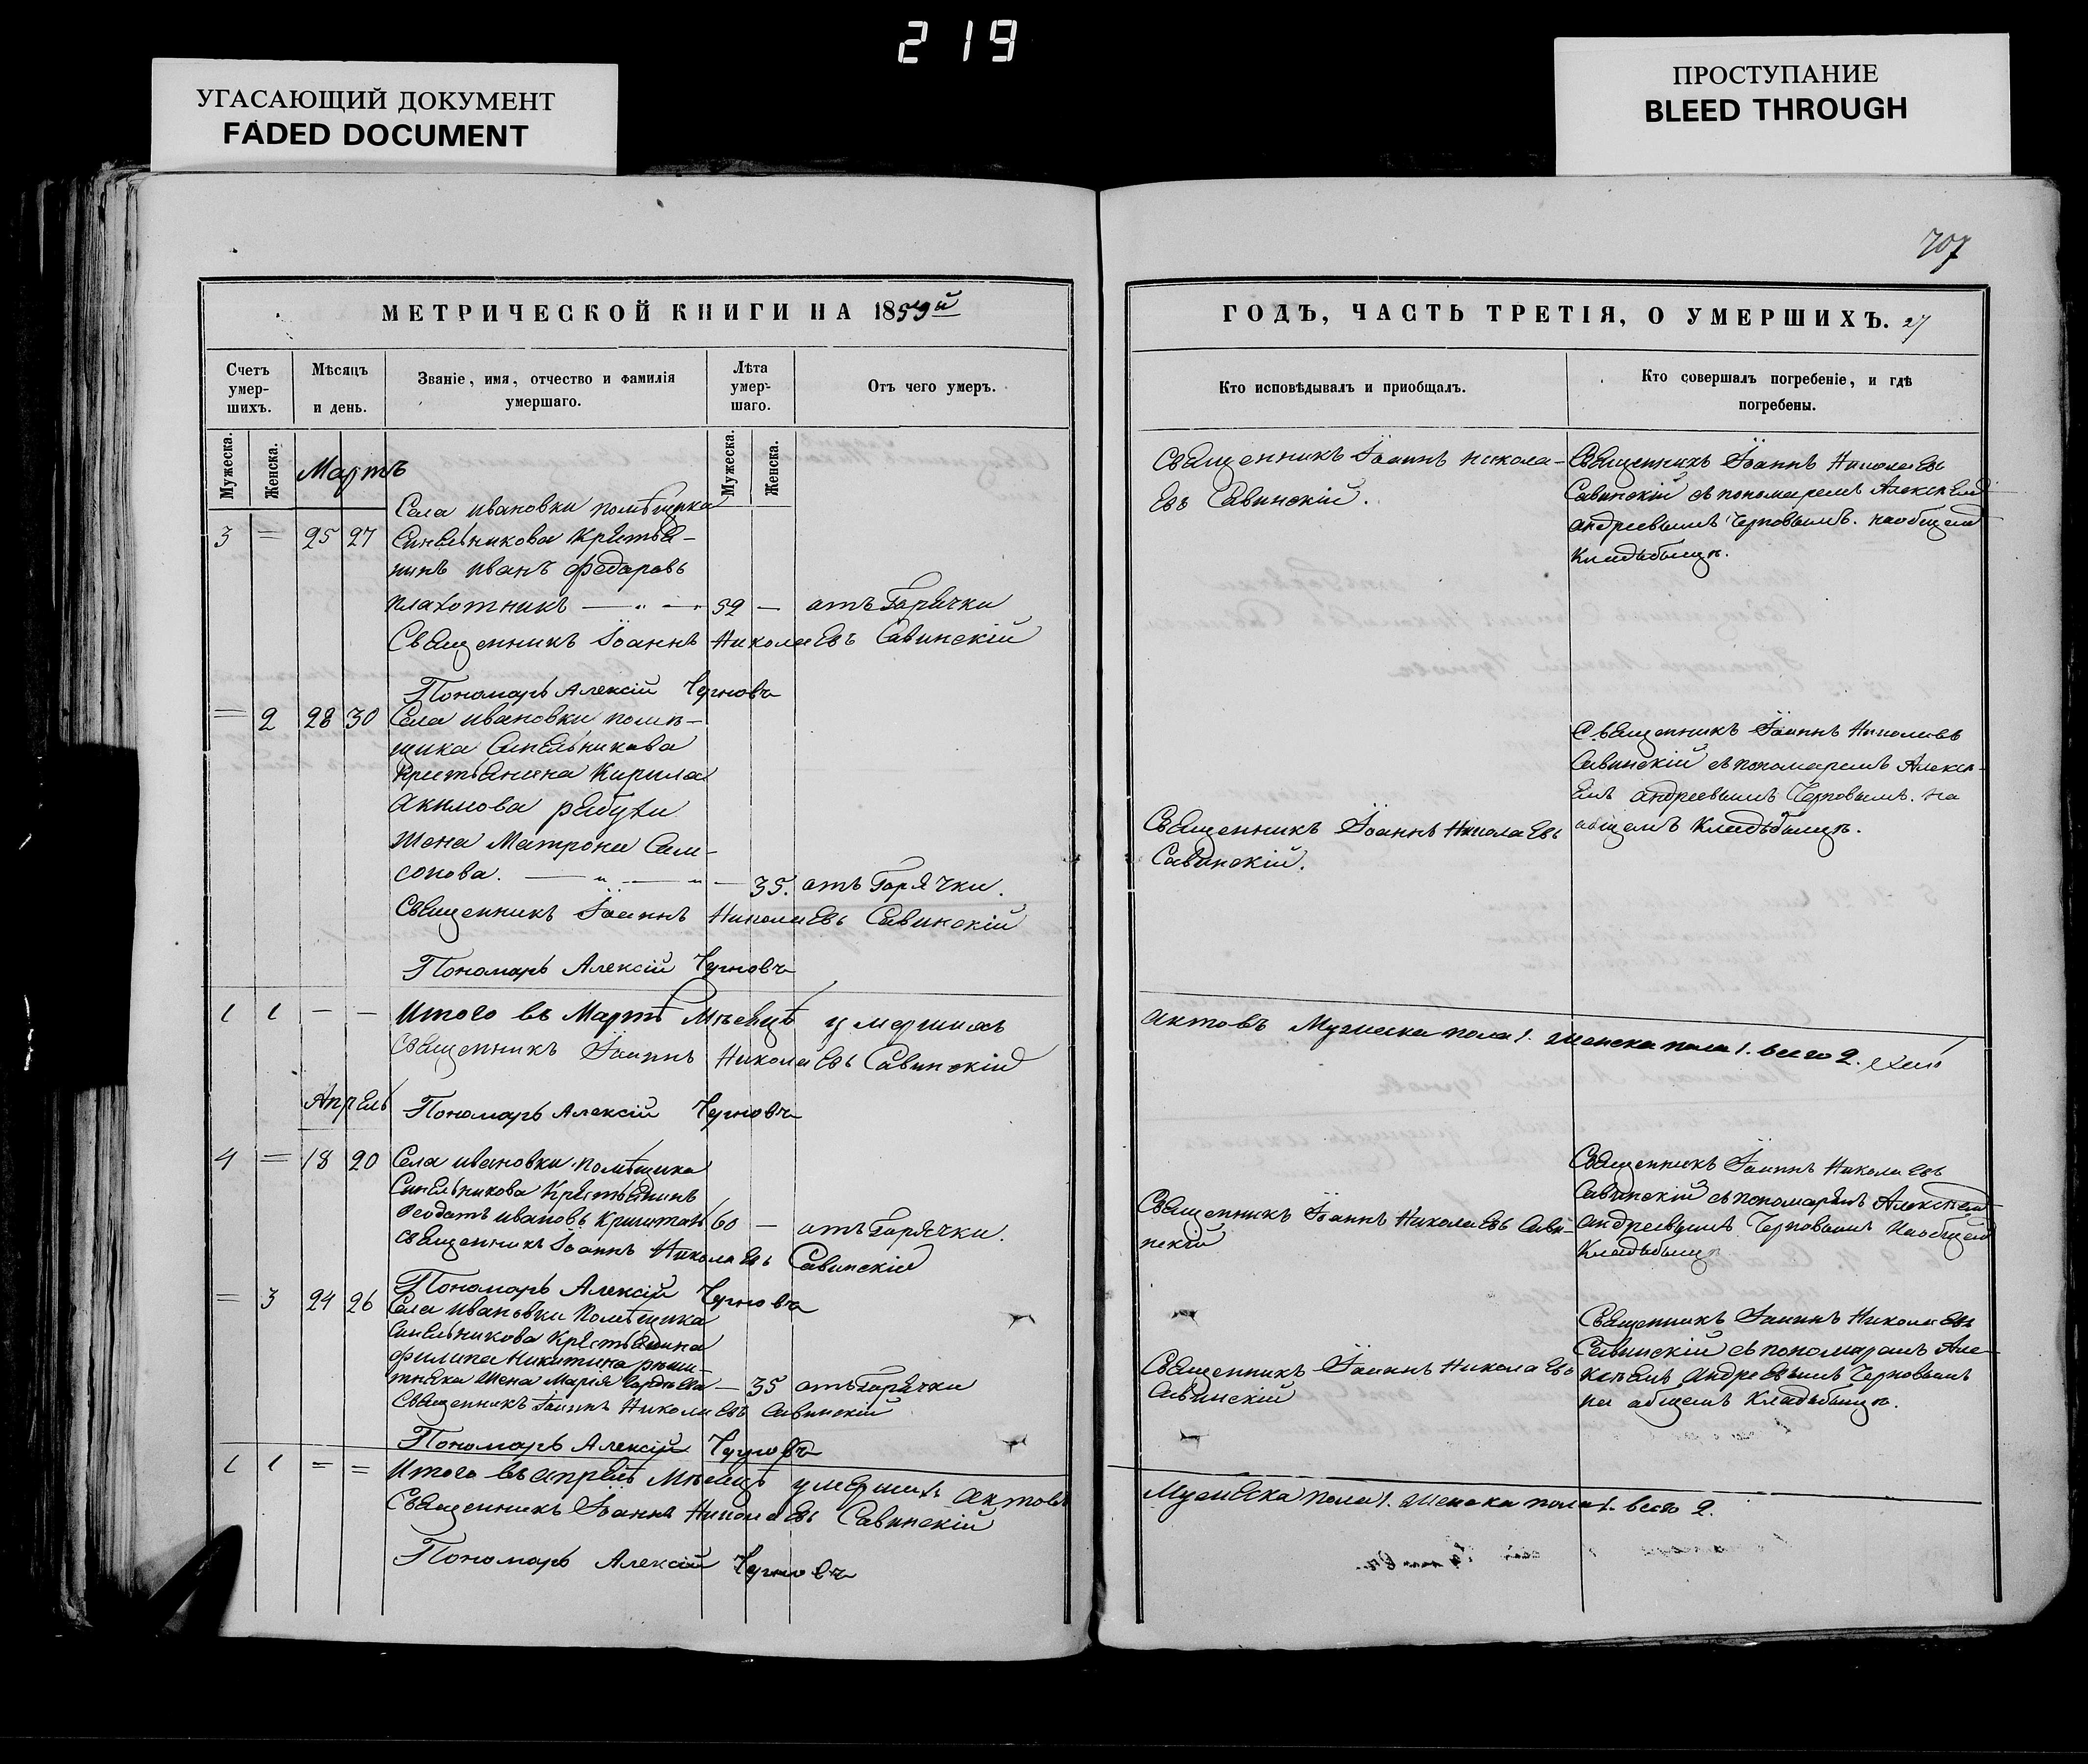 219
УГАСАЮЩИЙ ДОКУМЕНТ
FADED DOCUMENT
ПРОСТУПАНИЕ
BLEED THROUGH
707
МЕТРИЧЕСКОЙ КНИГИ НА 1859й
Счетъ умер-шихъ.
Мѣсяцъ и день.
Званіе, имя, отчество и фамилія умершаго.
Лѣта умер-шаго.
Отъ чего умеръ.
Мужеска.
Женска.
Мужеска.
Женска.
Мартъ
Села ивановки помѣщика
3 = 25 27 Синельникова Крестья-
нинъ иванъ федоровъ
плахотникъ — „ — „ 59 — отъ Горячки
Священникъ Іоаннъ Николаевъ Савинскій
Пономарь Алексій Черновъ
= 2 28 30 Села ивановки помѣ-
щика Синельникова
Крестьянина Кирила
Акимова рябухи
жена Матрона Сам-
сонова. — „ — „ — 35. отъ Горячки.
Священникъ Іоаннъ Николаевъ Савинскій
Пономарь Алексій Черновъ
1 1 — — Итого въ Мартѣ Мѣсяцѣ умершихъ
Священникъ Іоаннъ Николаевъ Савинскій
Апрель
Пономарь Алексій Черновъ
4 = 18 20 Села ивановки помѣщика
Синельникова Крестьянинъ
Феодотъ ивановъ 60 — отъ Горячки.
Священникъ Іоаннъ Николаевъ Савинскій
Пономарь Алексій Черновъ
= 3 24 26 Села ивановки Помѣщика
Синельникова Крестьянина
филипа Никитина рѣши-
тняка жена Марія — 35 отъ Горячки
Священникъ Іоаннъ Николаевъ Савинскій
Пономарь Алексій Черновъ
1 1 = = Итого въ апрелѣ Мѣсяцѣ умершихъ Актовъ
Священникъ Іоаннъ Николаевъ Савинскій
Пономарь Алексій Черновъ
ГОДЪ, ЧАСТЬ ТРЕТІЯ, О УМЕРШИХЪ. 27
Кто исповѣдывалъ и приобщалъ.
Кто совершалъ погребеніе, и гдѣ погребены.
Священникъ Іоаннъ никола-
евъ Савинскій.
Священникъ Іоаннъ Николаевъ
Савинскій съ пономаремъ Алексѣемъ
андреевымъ Черновымъ. на общемъ
Кладьбищѣ.
Священникъ Іоаннъ Николаевъ
Савинскій.
Священникъ Іоаннъ Николаевъ
Савинскій съ пономаремъ Алексѣ-
емъ андреевымъ Черновымъ. на
общемъ Кладьбищѣ.
актовъ Мужеска пола 1. женска пола 1. всего 2.
Священникъ Іоаннъ Николаевъ Сави-
нскій
Священникъ Іоаннъ Николаевъ
Савинскій съ пономаремъ Алексѣемъ
андреевымъ Черновымъ на общемъ
Кладьбищѣ
Священникъ Іоаннъ Николаевъ
Савинскій
Священникъ Іоаннъ Николаевъ
Савинскій съ пономаремъ Але-
ксѣемъ андреевымъ Черновымъ
на общемъ Кладьбищѣ.
Мужеска пола 1. женска пола 1. всего 2.